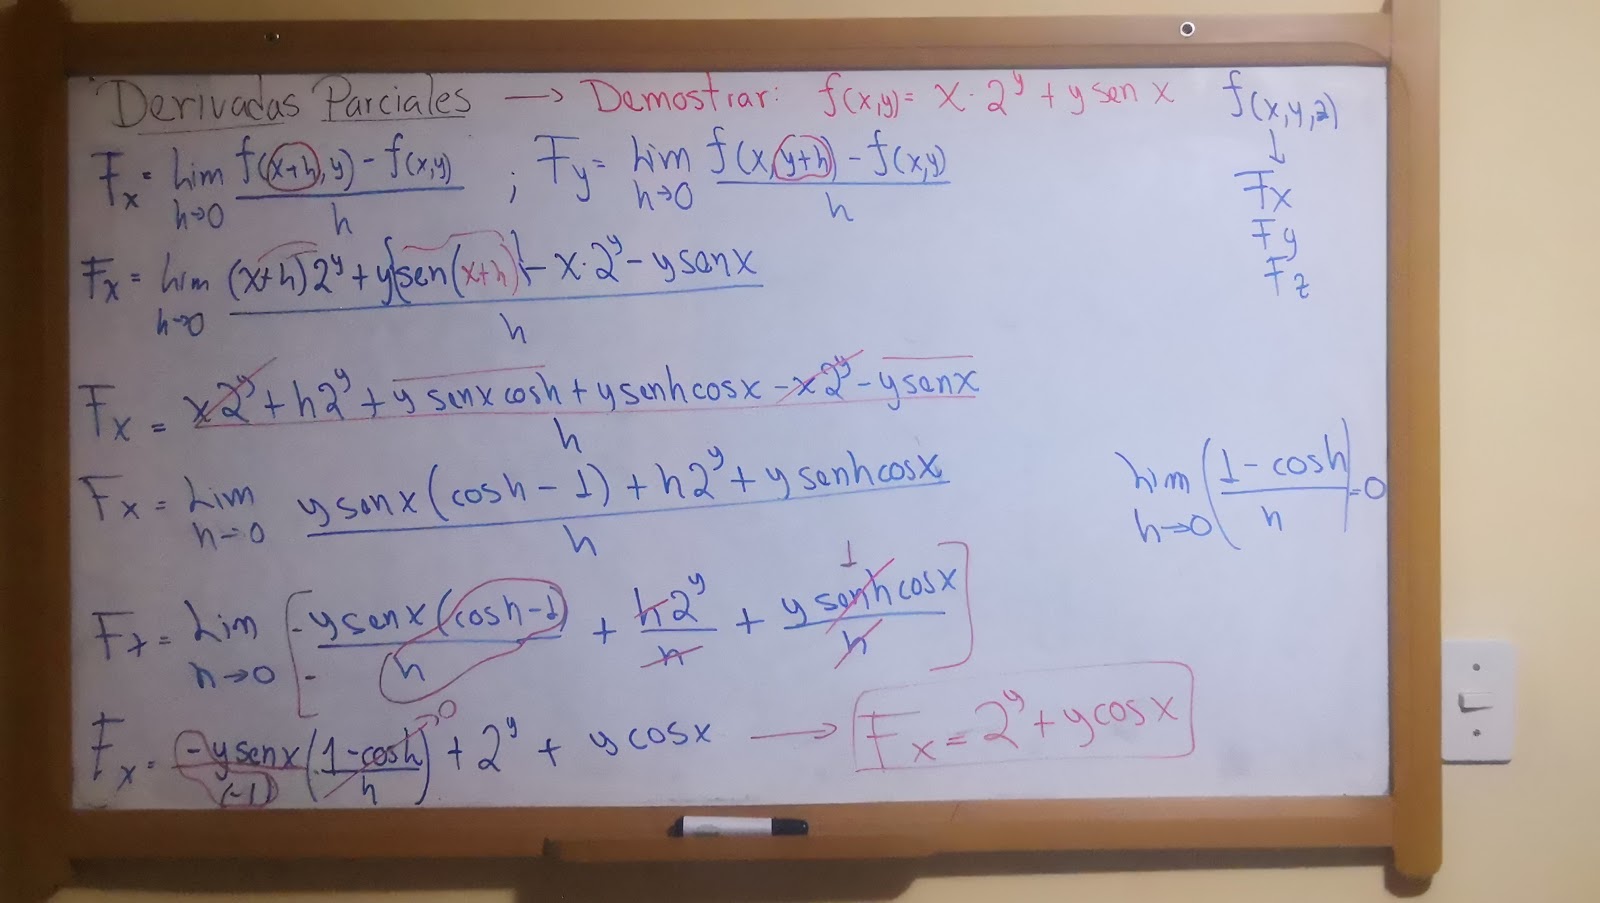 Derivadas Parciales → Demostrar: f(x,y) = x·2^y + y sen x
f(x,y,z)
↓
Fx
Fy
Fz
Fx = Lim h→0 (f(x+h,y) - f(x,y))/h ; Fy = Lim h→0 (f(x,y+h) - f(x,y))/h
Fx = Lim h→0 ((x+h)2^y + y{sen(x+h)} - x·2^y - y sen x)/h
Fx = (x2^y + h2^y + y senx cosh + y senh cosx - x2^y - y senx)/h
Fx = Lim h→0 (y senx (cosh - 1) + h2^y + y senh cosx)/h
Lim h→0 ((1 - cosh)/h) = 0
Fx = Lim h→0 [-y senx (cosh - 1)/h- + h2^y/h + y senh cosx/h] 1
Fx = -y senx/(-1) ((1 - cosh)/h) →0 + 2^y + y cosx → Fx = 2^y + y cosx